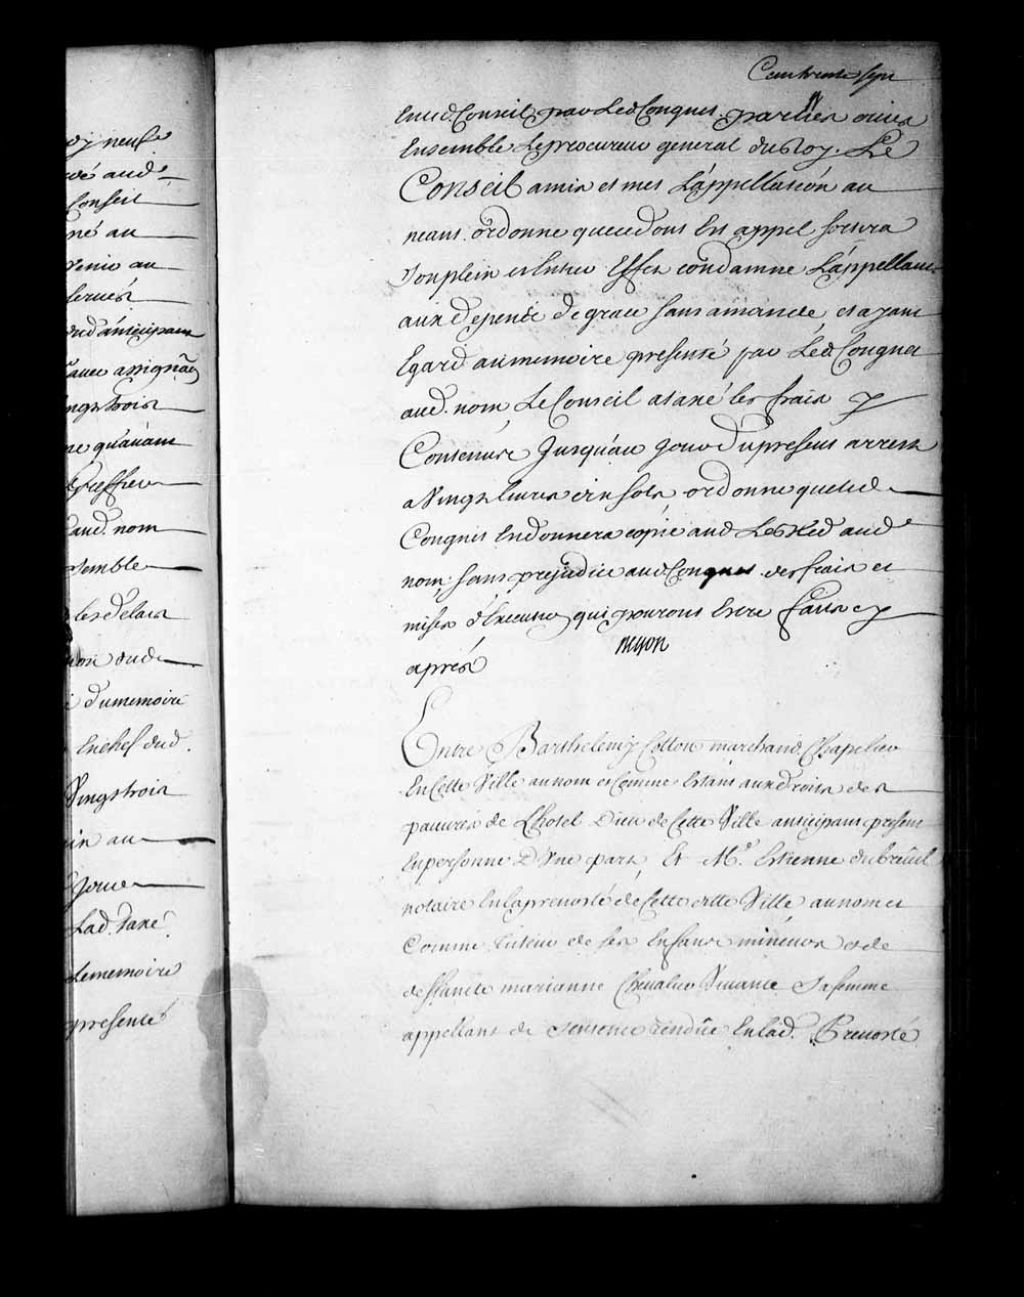 Cent trente sept
dix neuf
aud
Conseil
né au
Venir au
dud anticipant
avec assignaon
vingt trois
ne quavant
Greffier
aud. nom
semble
les delais
dud
du memoire
En chef dud.
Vingt trois
in au
Jour
Lad. taxé
Le memoire
presenté
Eud. Conseil par Led Congnet, parties ouies
Ensemble Le procureur general du Roy. Le
Conseil a mis et met L'appellation au
neant. ordonne que ce dont Est appel sortira
son plein et Entier Effet condamne L'appellant
aux depens de grace sans amande et ayant
Egard au memoire presenté par Led Congnet
aud. nom Le Conseil a taxé les frais y
Contenus Jusqu'au jour du present arrest
a Vingt livres six sols ordonne que led
Congnet En donnera copie aud aud
nom; sans prejudice aud Congnet des frais et
mises d'Execution qui pouront Estre faits cy
après
Entre Barthelemy Cotton marchand Chapelier
En Cette Ville au nom et Comme Estant aux droits des
pauvres de L'hotel Dieu de Cette Ville anticipant present
En personne D'Une part, Et Me Estienne dubreüil
notaire En la prevosté de Cette ditte Ville au nom et
Comme tuteur de ses Enfans mineurs et de
deffuncte marianne Chevalier Vivante Sa femme
appellant de sentence rendüe En lad. Prevosté